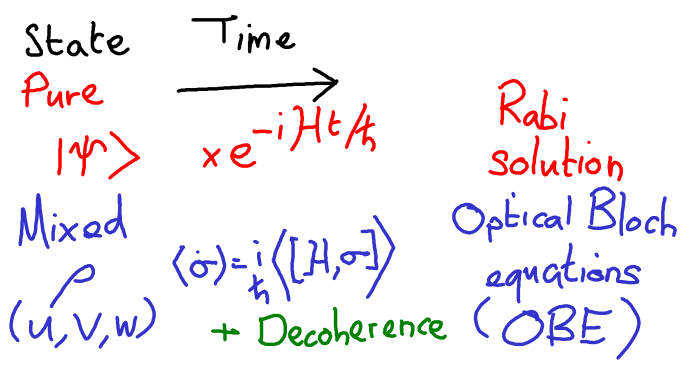 State Time
Pure
|ψ⟩ × e^{-iHt/ħ} Rabi solution
Mixed
ρ
(u, v, w)
⟨σ̇⟩ = i/ħ ⟨[H, σ]⟩
+ Decoherence
Optical Bloch
equations
(OBE)